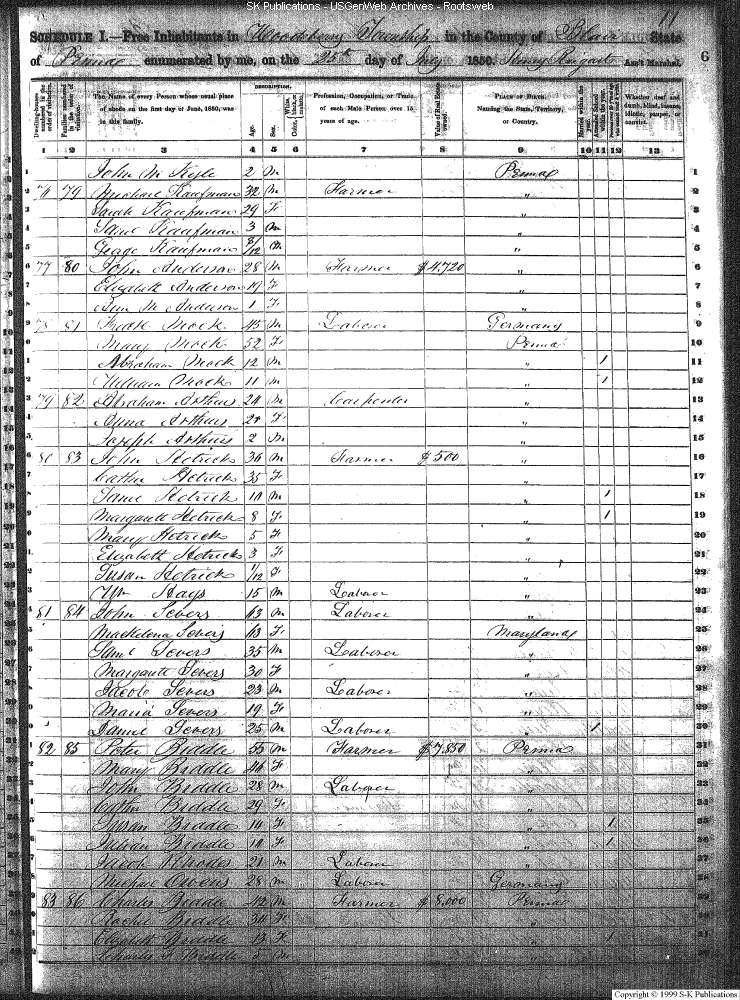 SK Publications - USGenWeb Archives - Rootsweb
11
SCHEDULE I.—Free Inhabitants in Woodbury Township in the County of Blair State
of Penna enumerated by me, on the 25th day of July 1850. Ass't Marshal. 6
DESCRIPTION.
Dwelling-houses numbered in the order of visitation. Families numbered in the order of visitation. The Name of every Person whose usual place of abode on the first day of June, 1850, was in this family. Age. Sex. Profession, Occupation, or Trade of each Male Person over 15 years of age. Value of Real Estate owned. PLACE OF BIRTH. Naming the State, Territory, or Country. Married within the year. Attended School within the year. Whether deaf and dumb, blind, insane, idiotic, pauper, or convict.
1 2 3 4 5 6 7 8 9 10 11 12 13
1 John M Kyle 2 M Penna 1
2 79 Michael Kaufman 32 M Farmer " 2
3 Sarah Kaufman 29 F " 3
4 Kaufman 3 M " 4
5 George Kaufman 8/12 M " 5
6 77 80 John Anderson 28 M Farmer $4,720 " 6
7 Elizabeth Anderson 19 F " 7
8 Ann M Anderson 1 F " 8
9 78 81 Mock 45 M Laborer Germany 9
10 Mary Mock 52 F Penna 10
11 Abraham Mock 12 M " 1 11
12 William Mock 11 M " 1 12
13 79 82 Abraham Arthurs 24 M Carpenter " 13
14 Anna Arthurs F " 14
15 Joseph Arthurs 2 M " 15
16 80 83 John Hetrick 36 M Farmer $500 " 16
17 Cathn Hetrick 35 F " 17
18 Saml Hetrick 10 M " 1 18
19 Margarett Hetrick 8 F " 1 19
20 Mary Hetrick 5 F " 20
21 Elizabeth Hetrick 3 F " 21
22 Susan Hetrick 1/12 F " 22
23 Wm Hays 15 M Laborer " 23
24 81 84 John Severs 63 M Laborer " 24
25 Madelena Severs 63 F Maryland 25
26 Saml Severs 35 M Laborer " 26
27 Margarett Severs 30 F " 27
28 Jacob Severs 23 M Laborer " 28
29 Maria Severs 19 F " 29
30 Daniel Severs 25 M Laborer " 1 30
31 82 85 Peter Biddle 55 M Farmer $7,850 Penna 31
32 Mary Biddle 46 F " 32
33 John Biddle 28 M Laborer " 33
34 Cathn Biddle 29 F " 34
35 Susan Biddle 14 F " 1 35
36 Biddle 10 " 1 36
37 Jacob Rhodes 21 M Laborer " 37
38 Michael Owens 28 M Laborer Germany 38
39 83 86 Charles Biddle 42 M Farmer $8,000 Penna 39
40 Rachel Biddle 34 F " 40
41 Elizabeth Biddle 13 F " 1 41
42 Charles F Biddle M " 42
Copyright © 1999 S-K Publications